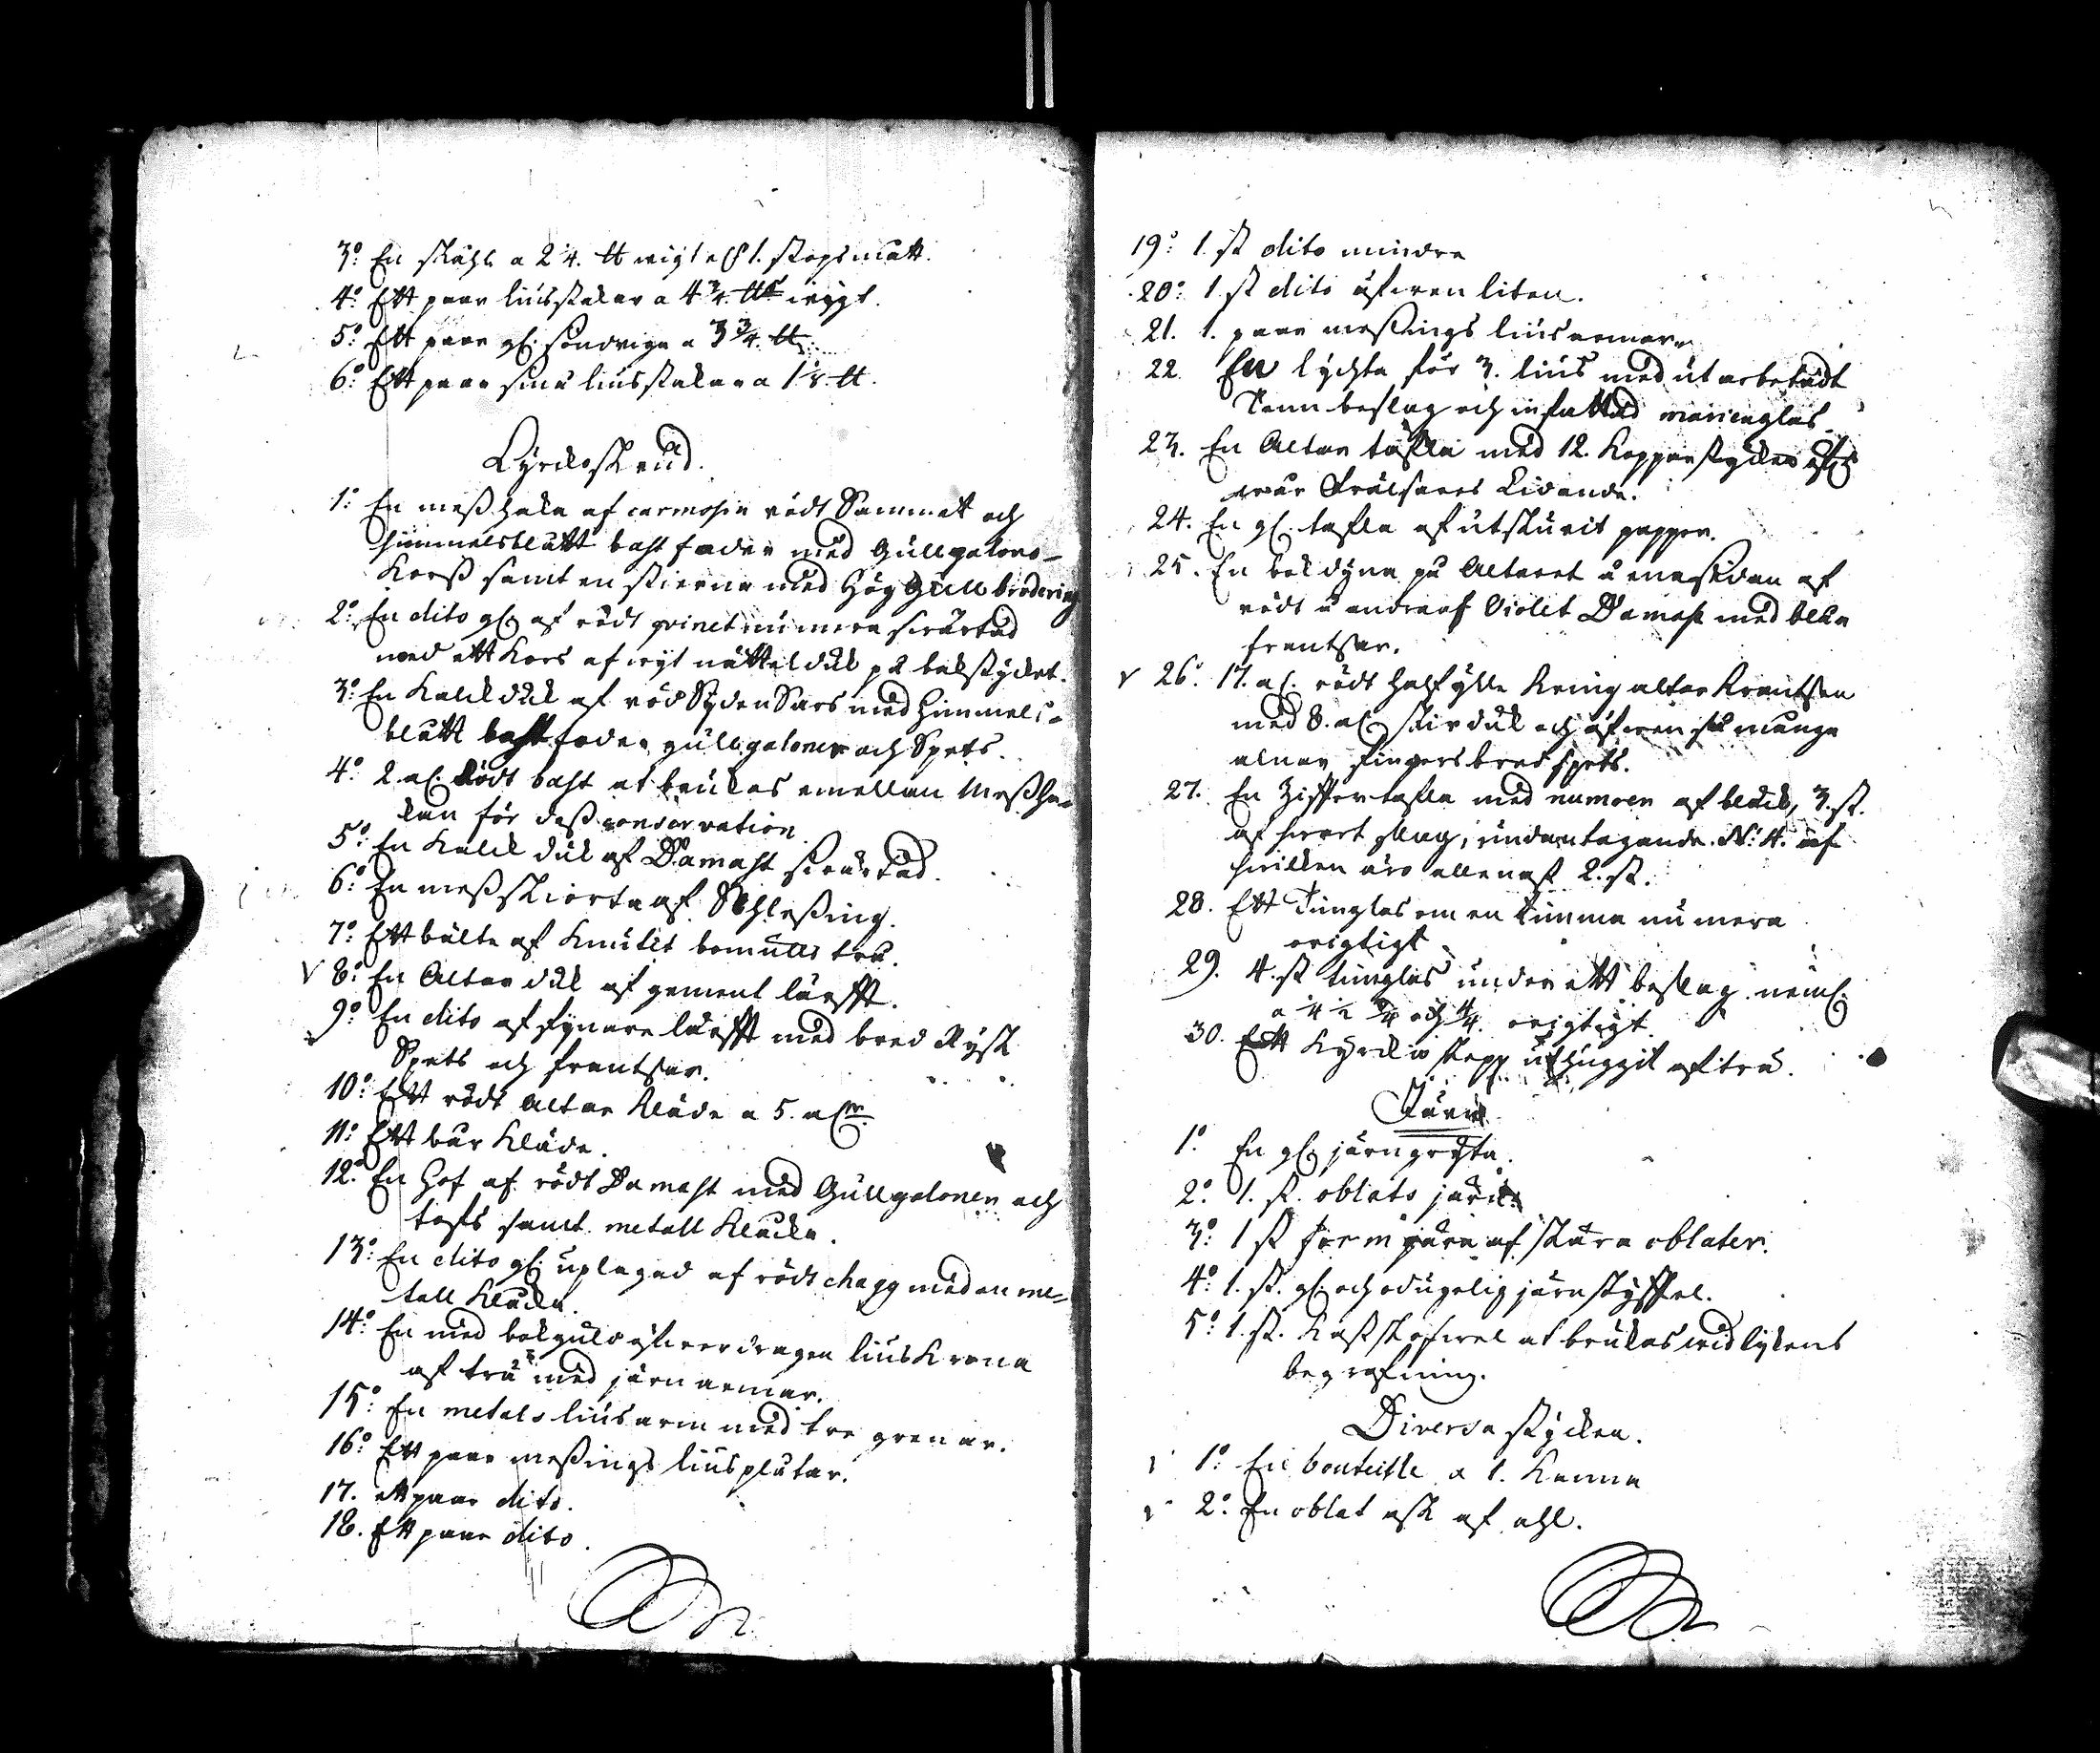 3:o En skåhl a 2¼. ℔ wigt af 1. stops mått.
4:o Ett paar liusstakar a 4¾ ℔ wigt.
5:o Ett paar gl. söndriga a 3¾. ℔
6:o Ett paar små liusstakar a 1⅛. ℔.
Kyrckoskrud.
1:o En messhake af carmosin rödt Sammet och
himmelsblått taft foder med Gullgalons-
Korss samt en stierna med hög Gull brodering
2:o En dito gl. af rödt numera swartad
med ett Kors af hwit nättelduk på bakstycket.
3:o En Kalckduk af röd Syden Sars med himmels-
blått taft foder, gullgaloner och Spets.
4:o 2. al. Rödt taft at brukas emellan Messha-
kan för dess conservation
5:o En Kalck duk af Damast swartad.
6:o En messkiorta af Schlessing.
7:o Ett bälte af Knutit bomulls trå.
V 8:o En Altar duk af gement lärfft.
9:o En dito af fynare lärfft med bred Rysk
Spets och frantsar.
10:o Ett rödt Altar Kläde a 5. alr.
11:o Ett bår Kläde.
12:o En Hof af rödt Damast med Gullgaloner och
tofs samt metall Klacka.
13:o En dito gl. uplagad af rödt chagg med en me-
tall Klacka.
14:o En med bokguld öfwerdragen liuskrona
af trä med järn armar.
15:o En metals liusarm med tre grenar.
16:o Ett paar messings liusplåtar.
17. ett paar dito.
18. Ett paar dito.
19:o 1. st dito mindre
20:o 1. st dito äfwen liten.
21. 1. paar messings liusarmar
22. En lychta för 3. lius med utarbetadt
Tenn beslag och infattad marieglas
23. En Altar tafla med 12. Kopparstycken af
wår Frälsares Lidande.
24. En gl. tafla af utskurit papper.
25. En bokdyna på Altaret å ena sidan af
rödt å andra af Violet Damast med blåa
frantsar.
V 26. 17. al. rödt halfylle Kring altar Krantsen
med 8. al. skirduk och äfwen så många
alnar fingersbred spets.
27. En Ziffertafla med numren af bläck, 3. st.
af hwart slag, undantagande N:o 4. af
hwilken äro allenast 2. st.
28. Ett Timglas om en timma numera
origtigt
29. 4. st timglas under ett beslag neml.
a ¼ ½ ¾ och 4/4. origtigt.
30. Ett Kyrckio skepp uthuggit af trä.
Järn
1:o En gl. järngryta.
2:o 1. st. oblats järn.
3:o 1 st form järn at skära oblater.
4:o 1. st. gl. och odugelig järnskyffel.
5:o 1. st. Kastskofwel at brukas wid lijkens
begrafning.
Diversa stycken.
1:o En bouteille a 1. Kanna
2:o En oblat ask af ahl.